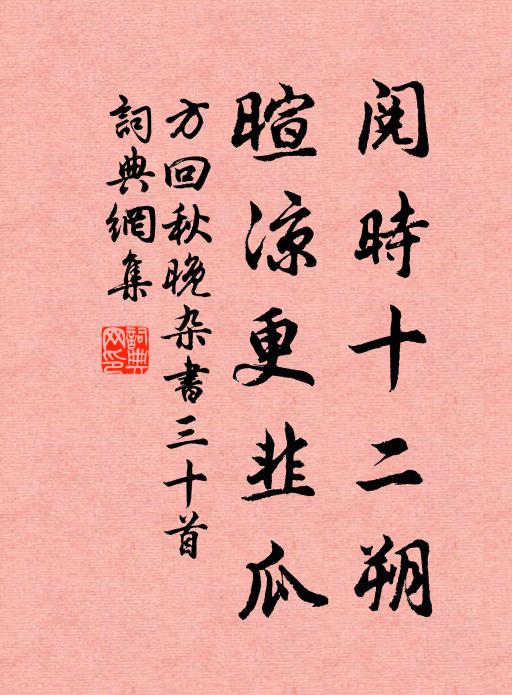 閱時十二朔
暄涼更韭瓜
方回秋晚杂書三十首
詞典網集
詞典網印